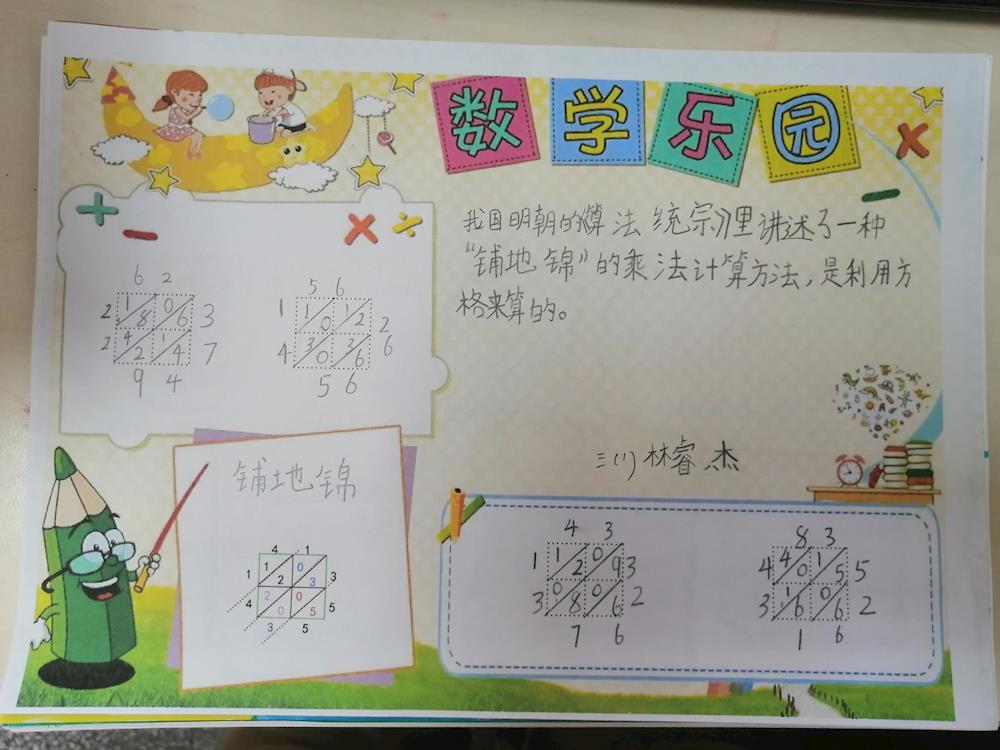 数学乐园
+ − × ÷
× −
我国明朝的《算法统宗》里讲述了一种
“铺地锦”的乘法计算方法，是利用方
格来算的。
三(1) 林睿杰
6 2
2 1 8 0 6 3
2 4 2 1 4 7
9 4
5 6
1 1 0 1 2 2
4 3 0 3 6 6
5 6
铺地锦
4 1
1 1 2 0 3 3
4 2 0 0 5 5
3 5
4 3
1 1 2 0 9 3
3 0 8 0 6 2
7 6
8 3
4 4 0 1 5 5
3 1 6 0 6 2
1 6